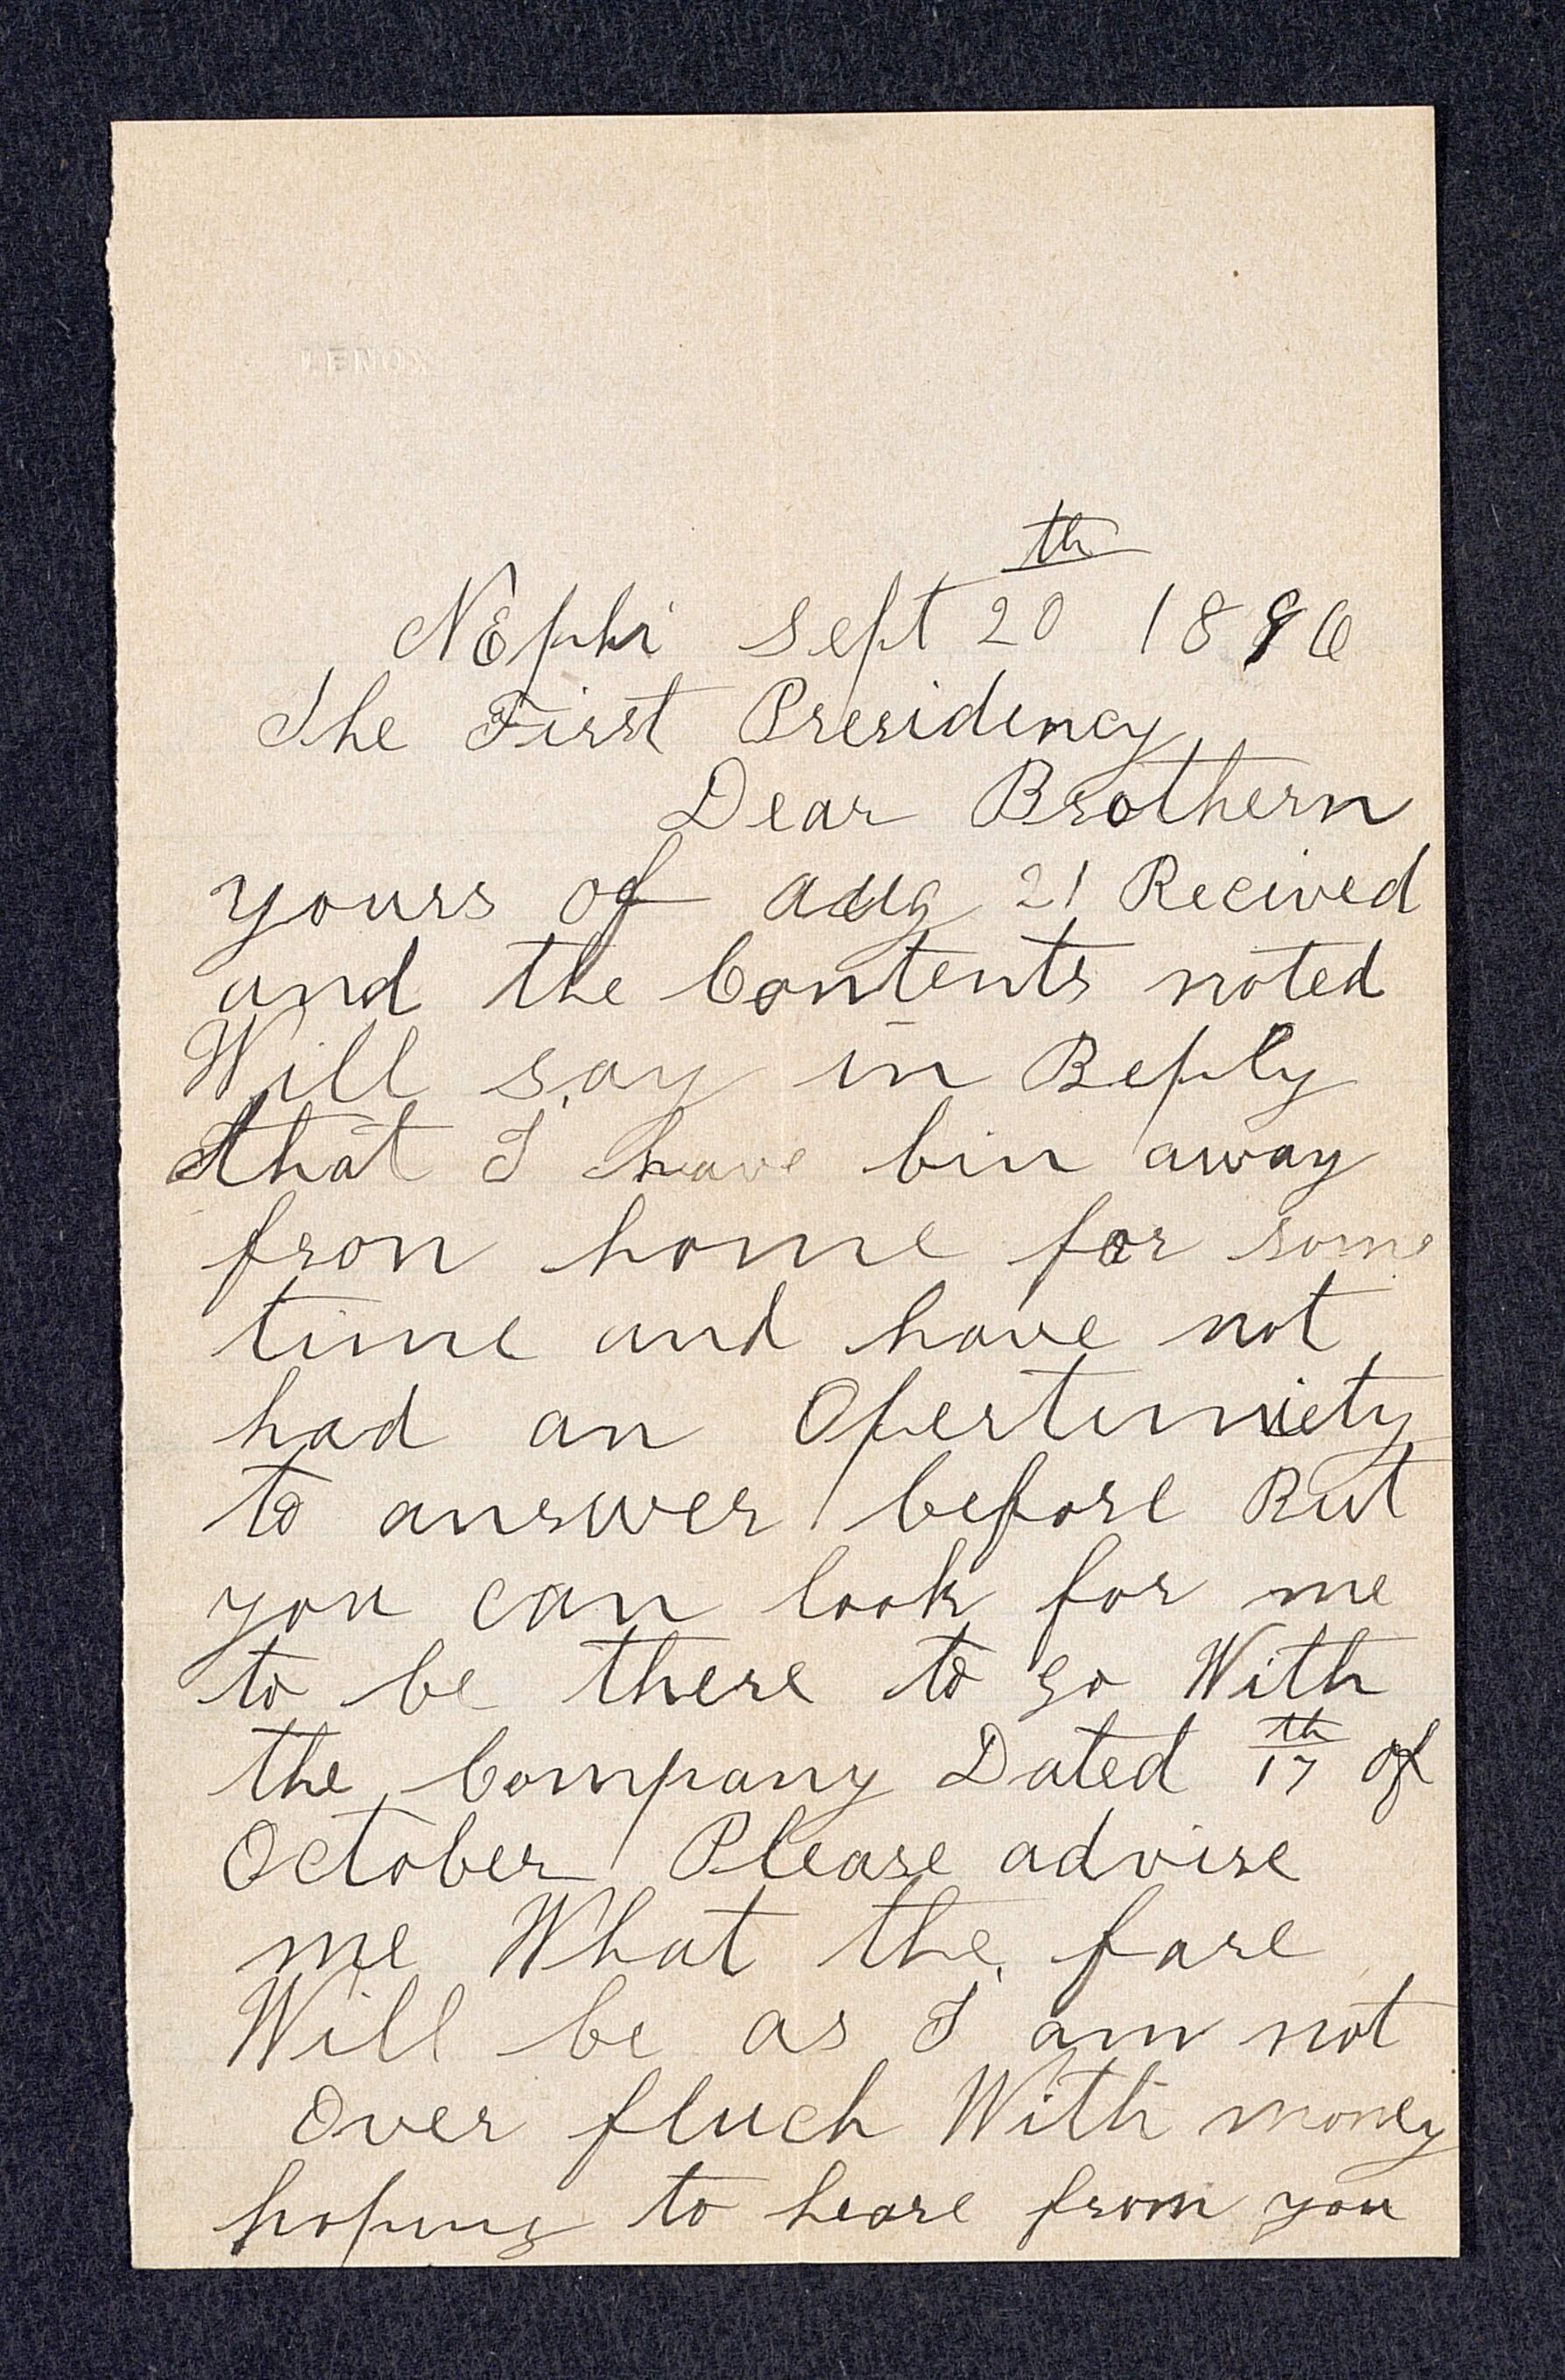 LENOX
NEphi Sept 20th 1896
The First Presidency
Dear Brothern
yours of aug 21 Recived
and the Contents noted
Will say in Reply
that I have bin away
fron home for some
time and have not
had an Opertuniety
to answer before But
you can look for me
to be there to go With
the Company Dated 17th of
October Please advise
me What the fare
Will be as I am not
Over fluch With money
hoping to heare from you